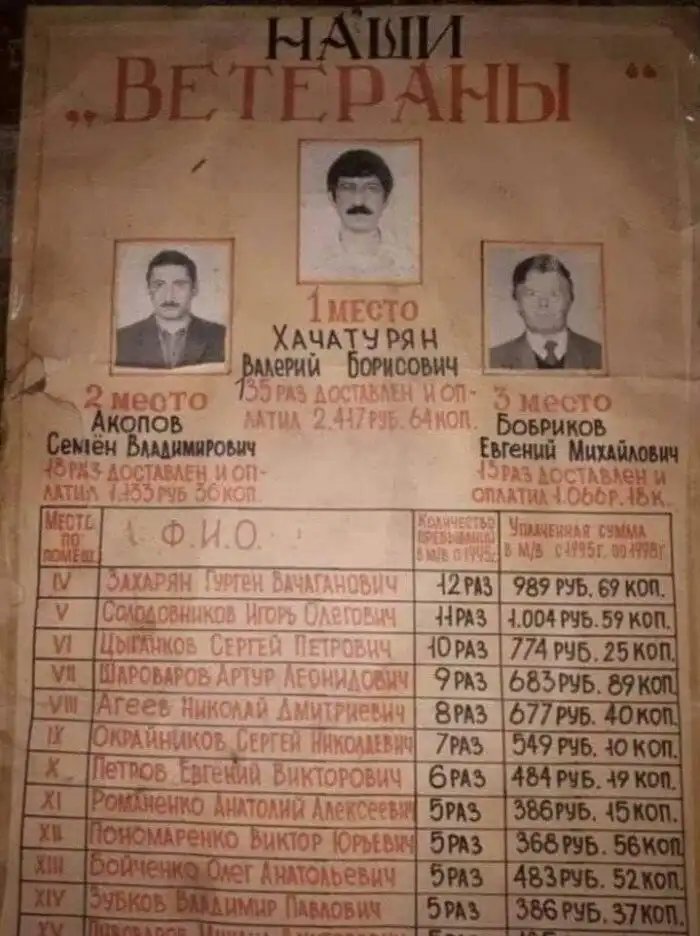 НАШИ
„ВЕТЕРАНЫ“
1 МЕСТО
ХАЧАТУРЯН
ВАЛЕРИЙ БОРИСОВИЧ
135 РАЗ ДОСТАВЛЕН И ОП-
ЛАТИЛ 2.417 РУБ. 64 КОП.
2 МЕСТО
АКОПОВ
СЕМЁН ВЛАДИМИРОВИЧ
18 РАЗ ДОСТАВЛЕН И ОП-
ЛАТИЛ 1.133 РУБ 36 КОП.
3 МЕСТО
БОБРИКОВ
ЕВГЕНИЙ МИХАЙЛОВИЧ
15 РАЗ ДОСТАВЛЕН И
ОПЛАТИЛ 1.066 Р. 18 К.
МЕСТЬ ПО ПОМЕЩ. Ф.И.О. КОЛИЧЕСТВО ПРЕБЫВАНИЙ В М/В С 1995Г. УПЛАЧЕННАЯ СУММА В М/В С 1995Г. ПО 1998Г
IV ЗАХАРЯН ГУРГЕН ВАЧАГАНОВИЧ 12 РАЗ 989 РУБ. 69 КОП.
V СОЛОДОВНИКОВ ИГОРЬ ОЛЕГОВИЧ 11 РАЗ 1.004 РУБ. 59 КОП.
VI ЦЫГАНКОВ СЕРГЕЙ ПЕТРОВИЧ 10 РАЗ 774 РУБ. 25 КОП.
VII ШАРОВАРОВ АРТУР ЛЕОНИДОВИЧ 9 РАЗ 683 РУБ. 89 КОП.
VIII АГЕЕВ НИКОЛАЙ ДМИТРИЕВИЧ 8 РАЗ 677 РУБ. 40 КОП.
IX ОКРАЙНИКОВ СЕРГЕЙ НИКОЛАЕВИЧ 7 РАЗ 549 РУБ. 10 КОП.
X ПЕТРОВ ЕВГЕНИЙ ВИКТОРОВИЧ 6 РАЗ 484 РУБ. 19 КОП.
XI РОМАНЕНКО АНАТОЛИЙ АЛЕКСЕЕВИЧ 5 РАЗ 386 РУБ. 15 КОП.
XII ПОНОМАРЕНКО ВИКТОР ЮРЬЕВИЧ 5 РАЗ 368 РУБ. 56 КОП
XIII БОЙЧЕНКО ОЛЕГ АНАТОЛЬЕВИЧ 5 РАЗ 483 РУБ. 52 КОП.
XIV ЗУБКОВ ВЛАДИМИР ПАВЛОВИЧ 5 РАЗ 386 РУБ. 37 КОП.
XV